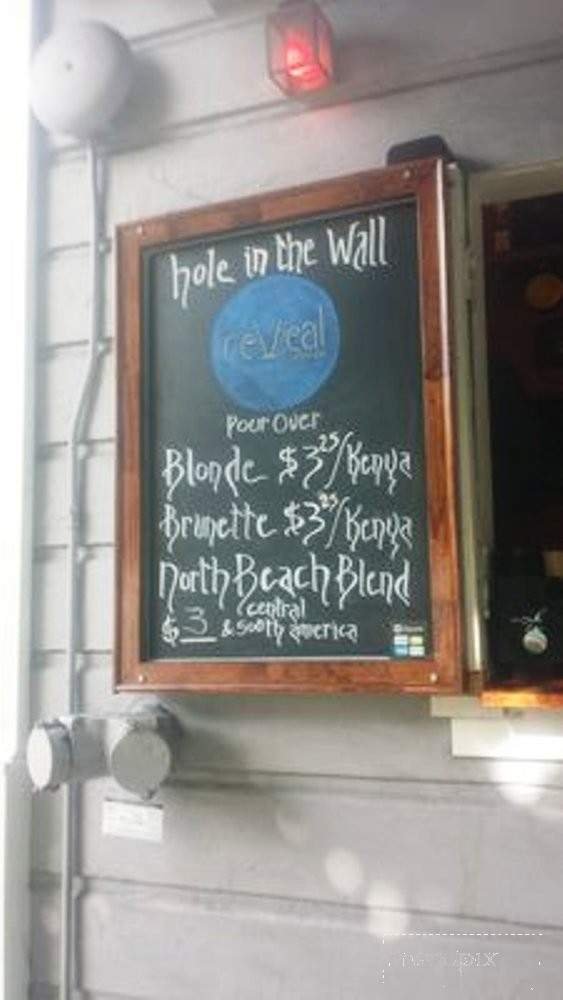 hole in the Wall
reveal
Pour Over
Blonde $3²⁵/Kenya
Brunette $3²⁵/Kenya
North Beach Blend
central
$3 & south america